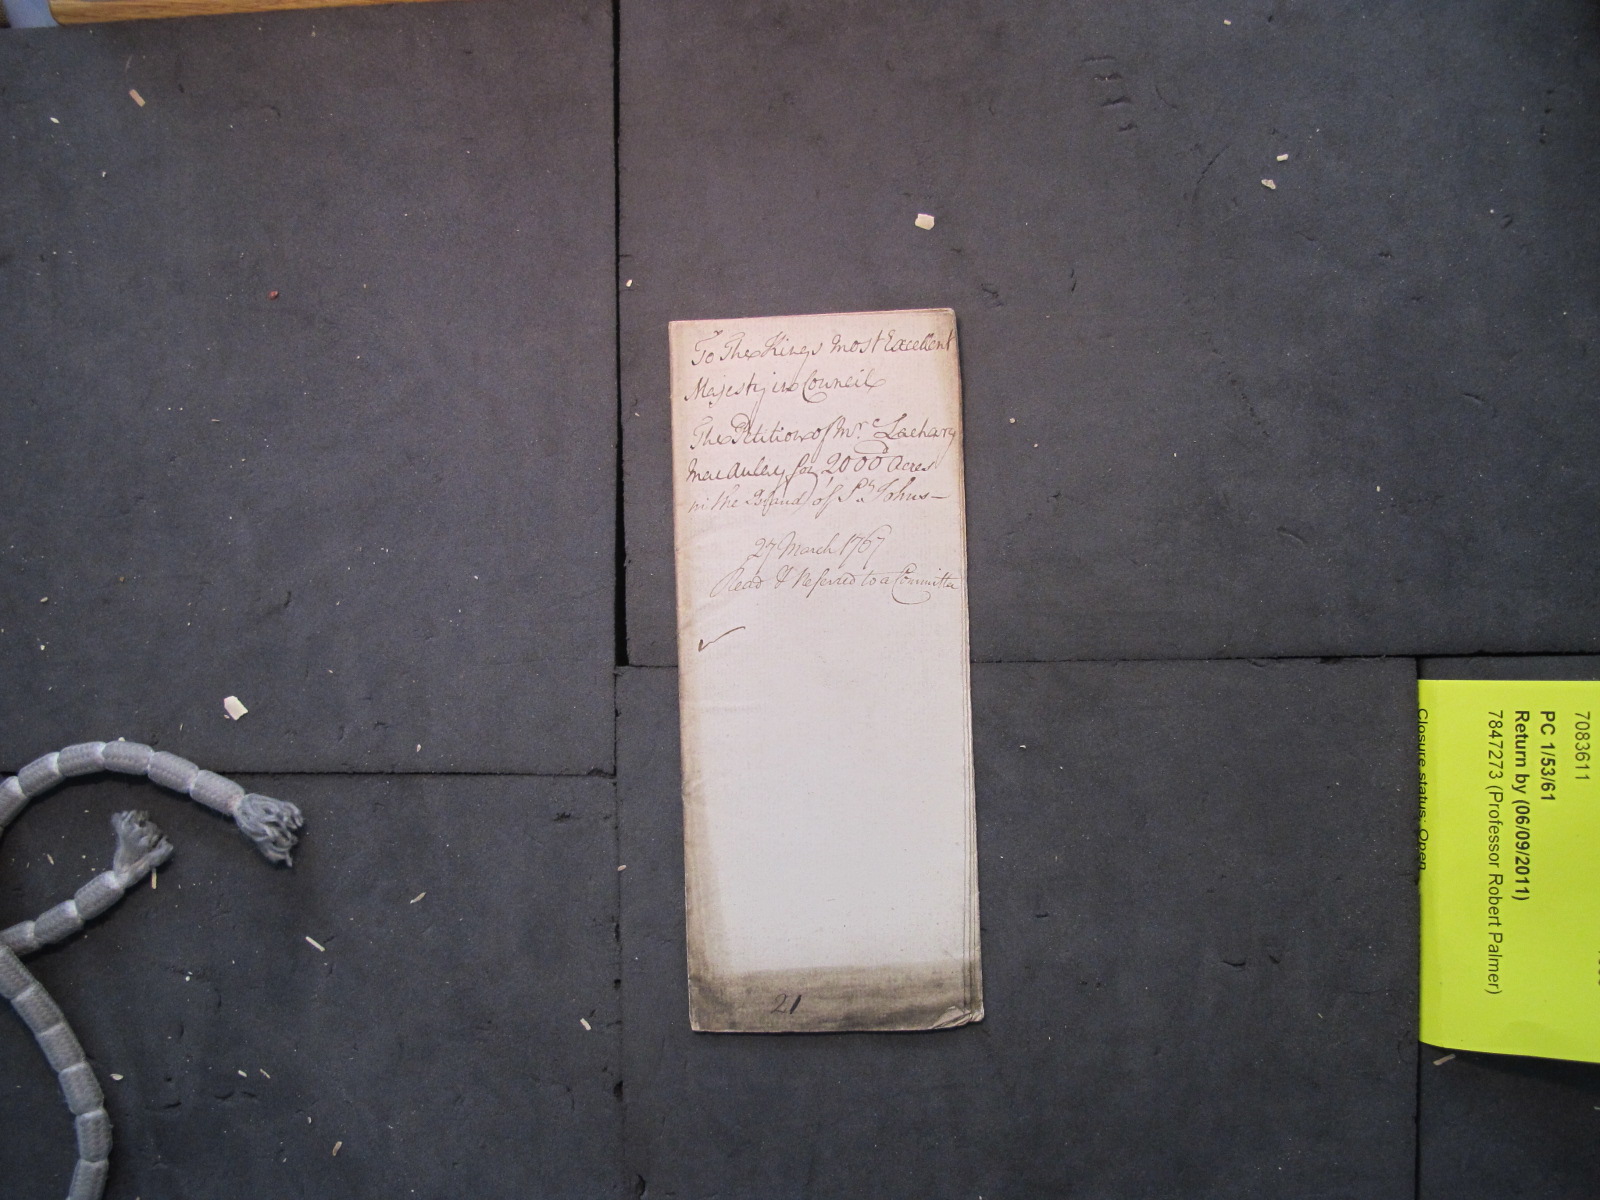 To The Kings most Excellent
Majesty in Council
The Petition of Mr. Zachary
MacAulay for 20000 Acres
in the Island of St. Johns—
27 March 1767
Read & Referred to a Committee
21
7083611
PC 1/53/61
Return by (06/09/2011)
7847273 (Professor Robert Palmer)
Closure status: Open